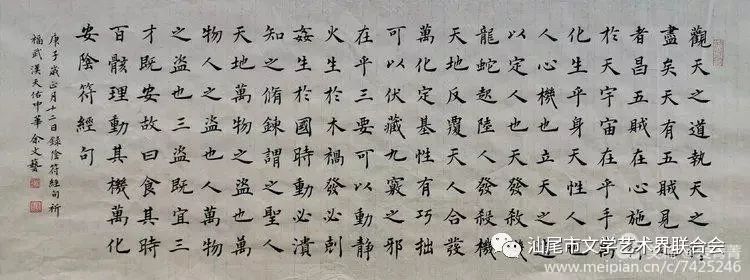 觀天之道執天之行
盡矣天有五賊見之
者昌五賊在心施行
於天宇宙在乎手萬
化生乎身天性人也
人心機也立天之道
以定人也天發殺機
龍蛇起陸人發殺機
天地反覆天人合發
萬化定基性有巧拙
可以伏藏九竅之邪
在乎三要可以動靜
火生於木禍發必剋
姦生於國時動必潰
知之脩鍊謂之聖人
天地萬物之盜也萬
物人之盜也人萬物
之盜也三盜既宜三
才既安故曰食其時
百骸理動其機萬化
安陰符經句
庚子歲正月十二日錄陰符經句祈
福武漢天佑中華余文藝
汕尾市文学艺术界联合会
www.meipian.cn/c/7425246